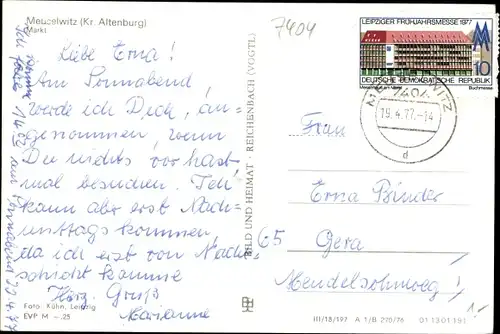 Meuselwitz (Kr. Altenburg)
(Markt)
7404
Liebe Erna!
Am Sonnabend,
werde ich Dich, an-
genommen, wenn
Du nichts vor hast
mal besuchen. Ich
kann aber erst Nach-
mittags kommen,
da ich erst von Nacht-
schicht komme
Herz. Gruß
Marianne
Foto: Kühn, Leipzig
EVP M –.25
BILD UND HEIMAT · REICHENBACH (VOGTL)
LEIPZIGER FRÜHJAHRSMESSE 1977
DEUTSCHE DEMOKRATISCHE REPUBLIK
Buchmesse
10
MEUSELWITZ
7404
19.4.77.-14
d
Frau
Erna Binder
65 Gera
Mendelsohnweg 1
III/18/197 A 1/B 270/76 01 13 01 191